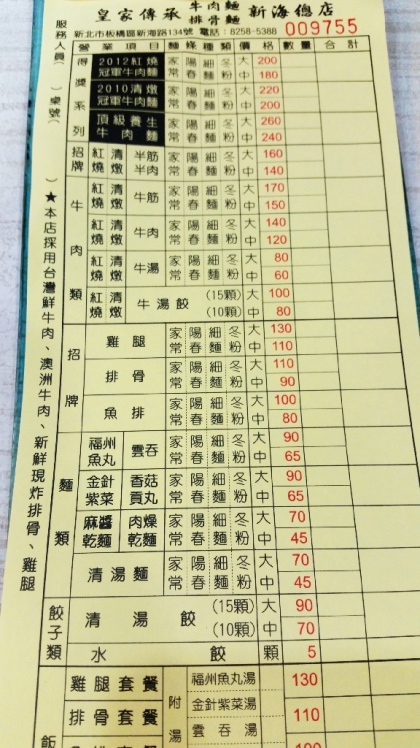 皇家傳承 牛肉麵 排骨麵 新海總店
新北市板橋區新海路134號 電話:8258-5388 009755
服務人員( ) 桌號( ) ★本店採用台灣鮮牛肉、澳洲牛肉、新鮮現炸排骨、雞腿
營業項目 麵條種類 價格 數量 合計
得獎系列
2012紅燒冠軍牛肉麵 家常 陽春 細麵 冬粉 大 200
中 180
2010清燉冠軍牛肉麵 家常 陽春 細麵 冬粉 大 220
中 200
頂級養生牛肉麵 家常 陽春 細麵 冬粉 大 260
中 240
招牌
紅燒 清燉 半筋半肉 家常 陽春 細麵 冬粉 大 160
中 140
牛肉類
紅燒 清燉 牛筋 家常 陽春 細麵 冬粉 大 170
中 150
紅燒 清燉 牛肉 家常 陽春 細麵 冬粉 大 140
中 120
紅燒 清燉 牛湯 家常 陽春 細麵 冬粉 大 80
中 60
紅燒 清燉 牛湯餃 (15顆) 大 100
(10顆) 中 80
招牌
雞腿 家常 陽春 細麵 冬粉 大 130
中 110
排骨 家常 陽春 細麵 冬粉 大 110
中 90
魚排 家常 陽春 細麵 冬粉 大 100
中 80
麵類
福州魚丸 雲吞 家常 陽春 細麵 冬粉 大 90
中 65
金針紫菜 香菇貢丸 家常 陽春 細麵 冬粉 大 90
中 65
麻醬乾麵 肉燥乾麵 家常 陽春 細麵 冬粉 大 70
中 45
清湯麵 家常 陽春 細麵 冬粉 大 70
中 45
餃子類
清湯餃 (15顆) 大 90
(10顆) 中 70
水餃 顆 5
飯
雞腿套餐 附湯 福州魚丸湯 130
排骨套餐 金針紫菜湯 110
雲吞湯
魚排套餐 100